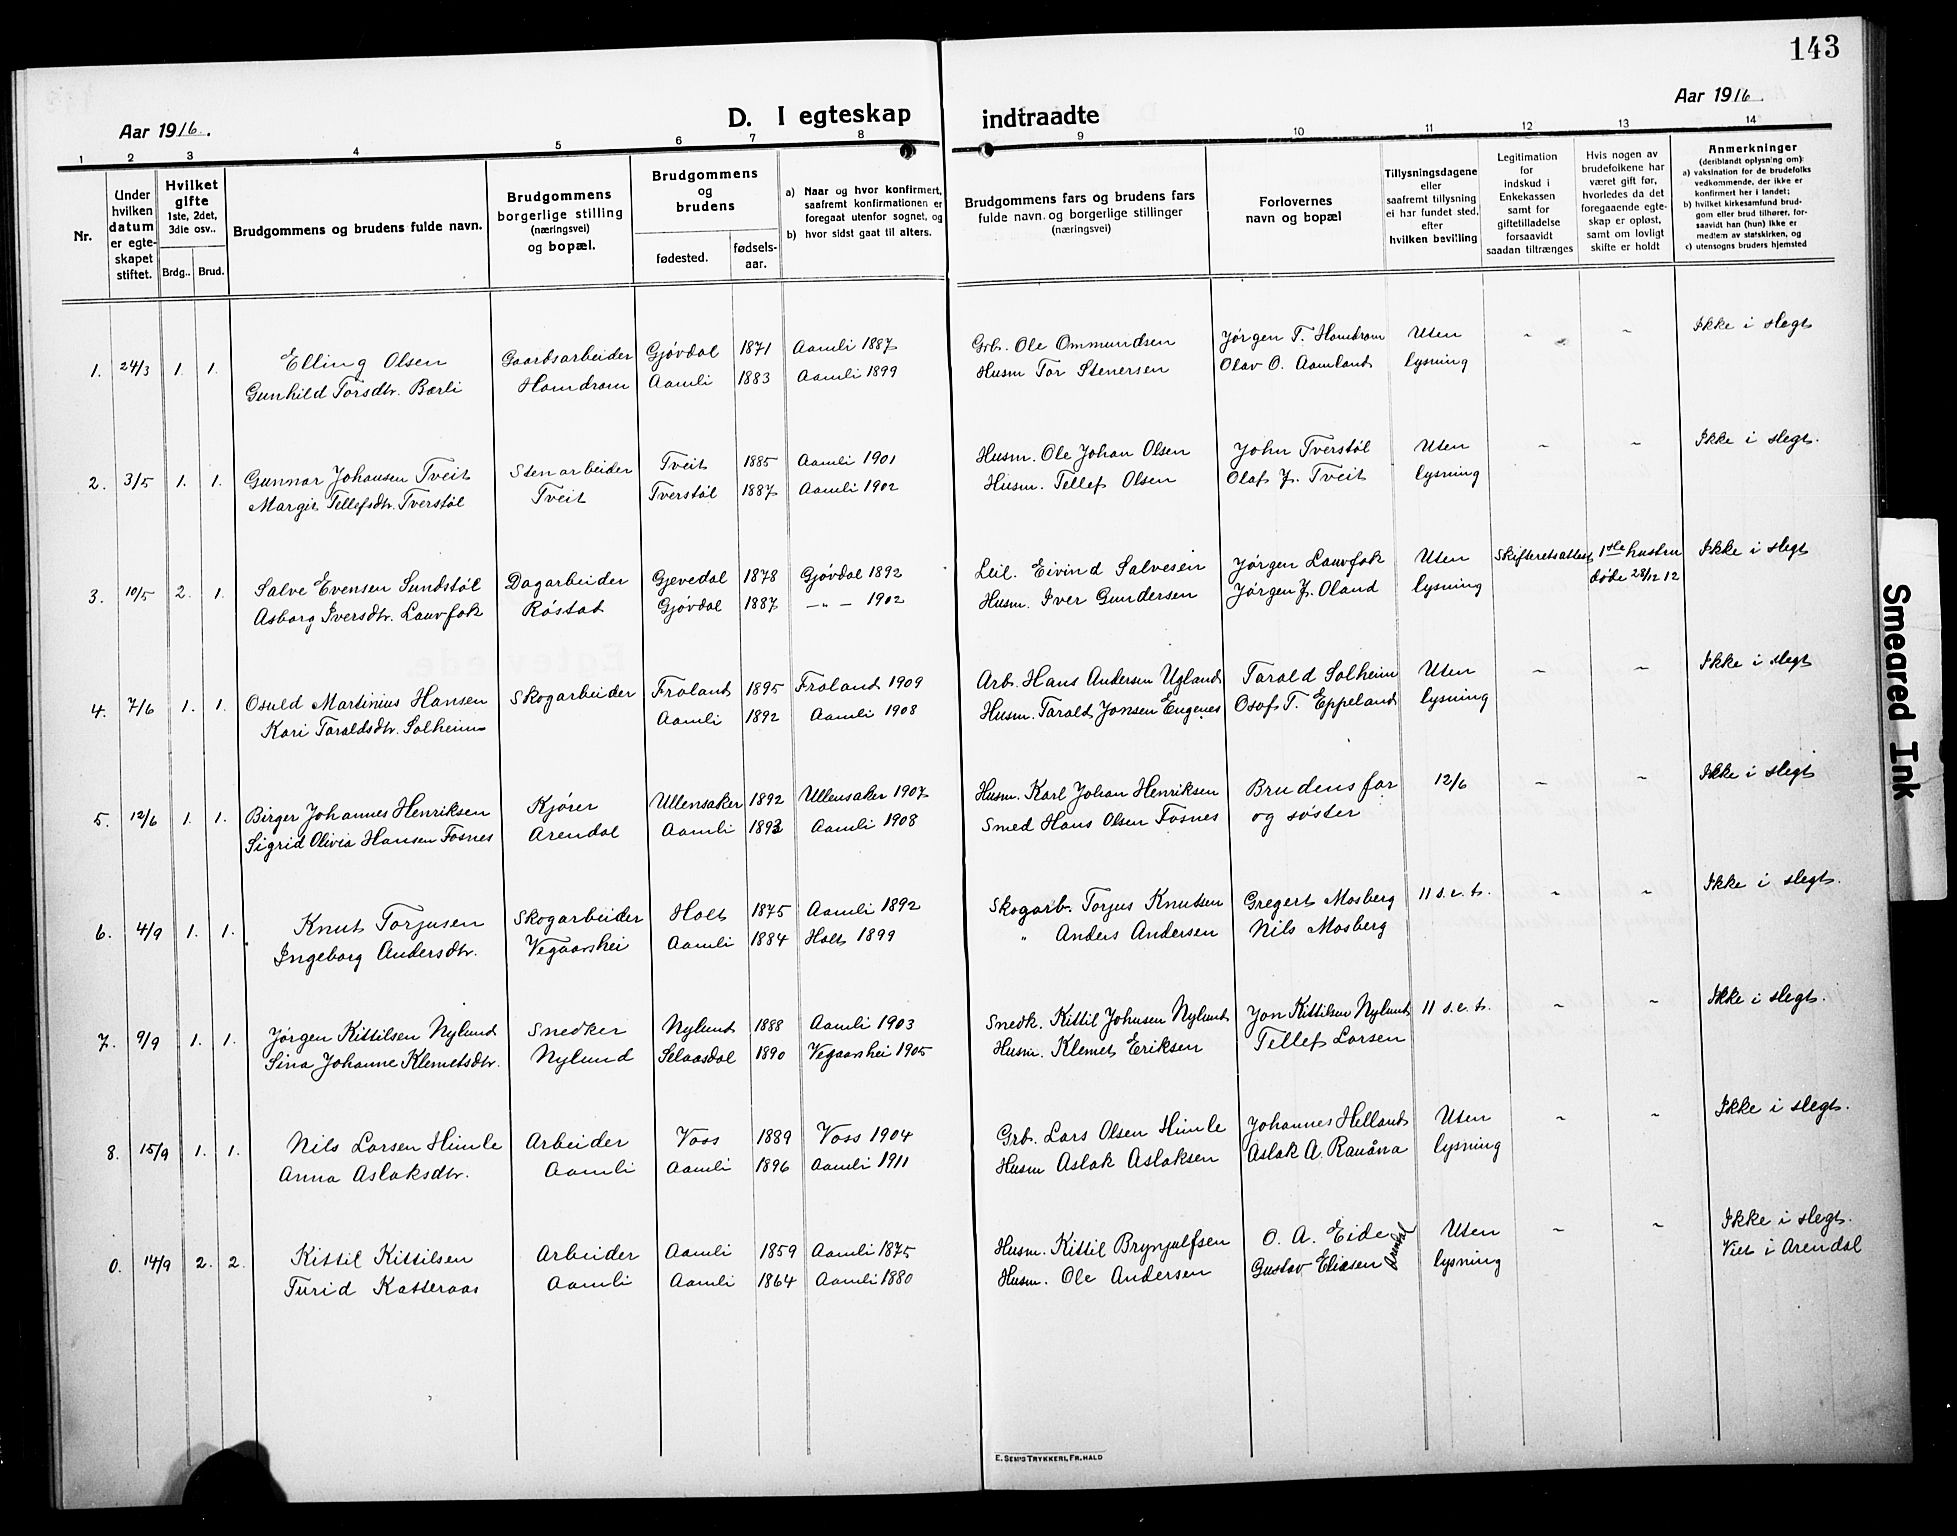 143
Aar 1916.
D. I egteskap indtraadte
Aar 1916.
1 2 3 4 5 6 7 8 9 10 11 12 13 14
Nr.
Under hvilken datum er egteskapet stiftet.
Hvilket gifte 1ste, 2det, 3die osv..
Brdg.. Brud.
Brudgommens og brudens fulde navn.
Brudgommens borgerlige stilling (næringsvei) og bopæl.
Brudgommens og brudens
fødested. fødsels-aar.
a) Naar og hvor konfirmert, saafremt konfirmationen er foregaat utenfor sognet, og
b) hvor sidst gaat til alters.
Brudgommens fars og brudens fars fulde navn og borgerlige stillinger (næringsvei)
Forlovernes navn og bopæl
Tillysningsdagene eller saafremt tillysning ei har fundet sted, efter hvilken bevilling
Legitimation for indskud i Enkekassen samt for giftetilladelse forsaavidt saadan tiltrænges
Hvis nogen av brudefolkene har været gift før, hvorledes da det foregaaende egteskap er opløst, samt om lovligt skifte er holdt
Anmerkninger (deriblandt oplysning om):
a) vaksination for de brudefolks vedkommende, der ikke er konfirmert her i landet;
b) hvilket kirkesamfund brudgom eller brud tilhører, forsaavidt han (hun) ikke er medlem av statskirken, og
c) utensogns bruders hjemsted
1. 24/3 1. 1. Elling Olsen Gaardsarbeider Gjøvdal 1871 Aamli 1887 Grb. Ole Ommundsen Jørgen T. Homdrom Uten ~ ~ Ikke i slegt
Gunhild Torsdtr. Bærli Homdrom Aamli 1883 Aamli 1899 Husm Tor Stenersen Olav O. Aamland lysning
2. 3/5 1. 1. Gunnar Johansen Tveit Stenarbeider Tveit 1885 Aamli 1901 Husm. Ole Johan Olsen John Tverstøl Uten ~ ~ Ikke i slegt.
Margit Tellefsdtr. Tverstøl Tveit Tverstøl 1887 Aamli 1902 Husm. Tellef Olsen Olaf J. Tveit lysning
3. 10/5 2. 1. Salve Evensen Sundstøl Dagarbeider Gjevedal 1878 Gjøvdal 1892 Leil. Eivind Salvesen Jørgen Lauvfok Uten Skifteretsattest 1ste hustru Ikke i slegt
Asborg Iversdtr. Lauvfok Røstad Gjøvdal 1887 —"— 1902 Husm. Iver Gundersen Jørgen J. Oland lysning døde 28/12 12
4. 7/6 1. 1. Osuld Martinius Hansen Skogarbeider Froland 1895 Froland 1909 Arb. Hans Andersen Ugland Tarald Solheim Uten ~ ~ Ikke i slegt
Kari Taraldsdtr. Solheim Aamli 1892 Aamli 1908 Husm. Tarald Jonsen Engenes Osof T. Eppeland lysning
5. 12/6 1. 1. Birger Johannes Henriksen Kjører Ullensaker 1892 Ullensaker 1907 Husm. Karl Johan Henriksen Brudens far 12/6 ~ ~ Ikke i slegt
Sigrid Olivia Hansen Fosnes Arendal Aamli 1893 Aamli 1908 Smed Hans Olsen Fosnes og søster
6. 4/9 1. 1. Knut Torjusen Skogarbeider Holt 1875 Aamli 1892 Skogarb. Torjus Knutsen Gregert Mosberg 11 s. e. t. ~ ~ Ikke i slegt.
Ingeborg Andersdtr. Vegaarshei Aamli 1884 Holt 1899 " Anders Andersen Nils Mosberg
7. 9/9 1. 1. Jørgen Kittilsen Nylund Snedker Nylund 1888 Aamli 1903 Snedk. Kittil Johnsen Nylund Jon Kittilsen Nylund 11 s. e. t. ~ ~ Ikke i slegt.
Sina Johanne Klemetsdtr. Nylund Selaasdal 1890 Vegaarshei 1905 Husm. Klemet Eriksen Tellef Larsen
8. 15/9 1. 1. Nils Larsen Himle Arbeider Voss 1889 Voss 1904 Grb. Lars Olsen Himle Johannes Helland Uten ~ ~ Ikke i slegt.
Anna Aslaksdtr. Aamli Aamli 1896 Aamli 1911 Husm Aslak Aslaksen Aslak A. Rauåna lysning
0. 14/9 2. 2. Kittil Kittilsen Arbeider Aamli 1859 Aamli 1875 Husm. Kittil Brynjulfsen O. A. Eide Uten ~ ~ Ikke i slegt.
Turid Katteraas Aamli Aamli 1864 Aamli 1880 Husm. Ole Andersen Gustav Eliesen Arendal lysning Viet i Arendal
E. SEM'S TRYKKERI, FR.HALD
Smeared Ink